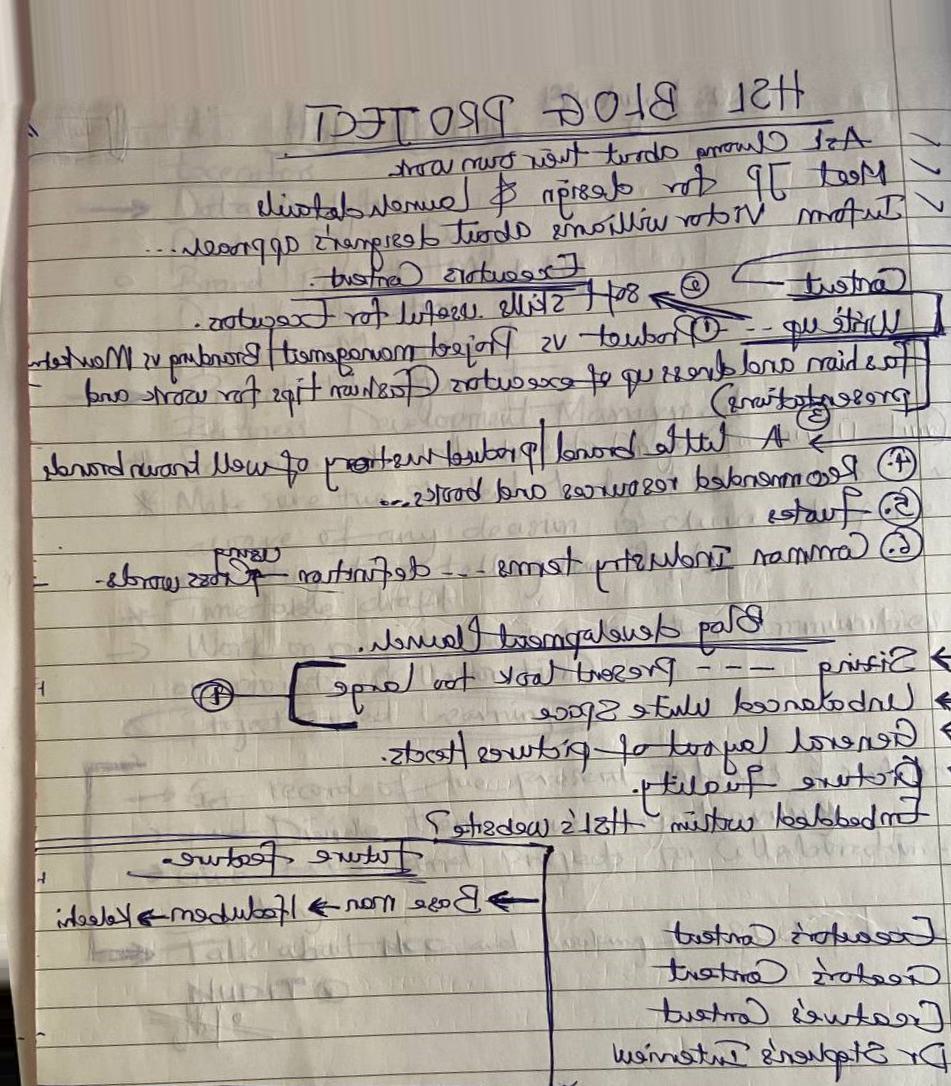 HSL BLOG PROJECT
Ask Chuoma about their own work
Meet JB for design & Launch details
Inform Victor Williams about designer's approach...
Executor's Content.
Content → ② Soft skills useful for Executor.
Write up -- ① Product vs Project management / Branding vs Marketing
Fashion and dress up of executors (Fashion tips for work and
presentations)
③
→ A little brand / product history of well known brands
④. Recommended resources and books...
⑤. Quotes
⑥. Common Industry terms --- definition & cross words.
using
Blog development Launch.
→ Sizing --- present look too large
④
→ Unbalanced white space
→ General layout of pictures / texts.
Picture Quality.
Embedded within HSL's website?
Future feature
→ Base → → Kelechi
Executor's Content
Creator's Content
Creature's Content
Dr Stephen's Interview